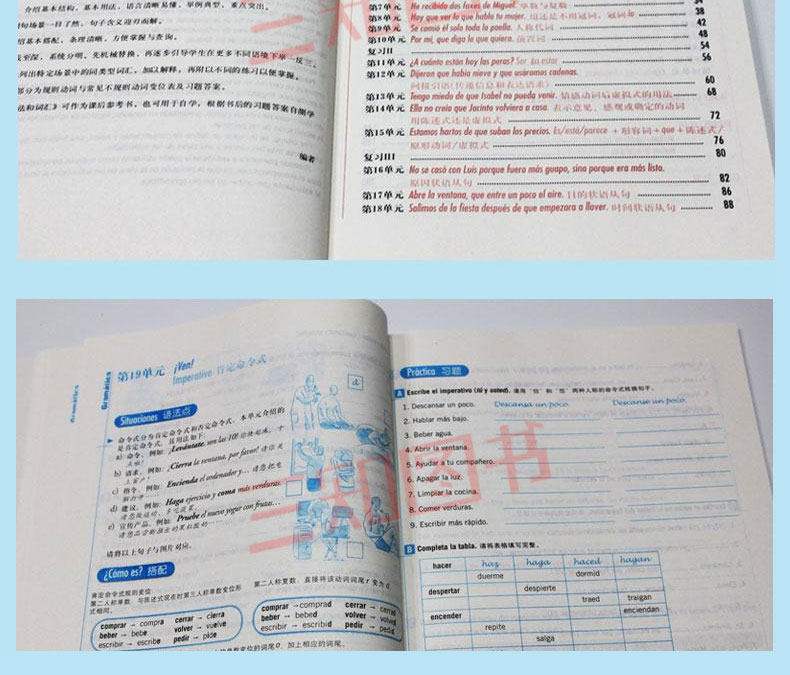 介绍基本结构、基本用法，语言清晰易懂，举例典型，重点突出。
句场景一目了然，句子含义迎刃而解。
绍基本搭配，条理清晰，方便掌握与查询。
至深，系统分明，先机械替换，再逐步引导学生在更多不同语境下举一反三。
列出特定场景中的同类型词汇，加以解释，再附以不同的练习以便掌握。
部分为规则动词与常见不规则动词变位表及习题答案。
法和词汇》可作为课后参考书，也可用于自学，根据书后的习题答案自测学
编者
第7单元 He recibido dos faxes de Miguel. 单数与复数
第8单元 Hay que ver lo que habla tu mujer. 38
第9单元 Se comió él solo toda la paella. 人称代词 42
第10单元 Por mí, que diga lo que quiera. 前置词 48
复习II 54
第11单元 ¿A cuánto están hoy las peras? Ser 和 estar 56
第12单元 Dijeron que había nieve y que usáramos cadenas.
间接引语(传递信息和表达请求) 60
第13单元 Tengo miedo de que Isabel no pueda venir. 情感动词后虚拟式的用法 68
第14单元 Ella no creía que Jacinto volviera a casa. 表示意见、感观或确定的动词
用陈述式还是虚拟式 72
第15单元 Estamos hartos de que suban los precios. Es/está/parece + 形容词 + que + 陈述式/
原形动词/虚拟式 76
复习III 80
第16单元 No se casó con Luis porque fuera más guapo, sino porque era más listo.
原因状语从句 82
第17单元 Abre la ventana, que entre un poco el aire. 目的状语从句 86
第18单元 Salimos de la fiesta después de que empezara a llover. 时间状语从句 88
三知图书
Gramática
Gramática
第19单元 ¡Ven!
Imperativo 肯定命令式
Situaciones 语法点
命令式分为肯定命令式和否定命令式。本单元介绍的
是肯定命令式，其用法如下：
a) 命令，例如：¡Levántate, son las 10!
b) 请求，例如：¡Cierra la ventana, por favor!
c) 指令，例如：Encienda el ordenador y...
d) 建议，例如：Haga ejercicio y coma más verduras.
e) 宣传产品，例如：Pruebe el nuevo yogur con frutas...
请将以上句子与图片对应。
¿Cómo es? 搭配
肯定命令式规则变位:
第二人称单数，与陈述式现在时第三人称单数变位形
式相同。
comprar → compra cerrar → cierra
beber → bebe volver → vuelve
escribir → escribe pedir → pide
第二人称复数，直接将该动词词尾r 变为 d
comprar → comprad cerrar → cerrad
beber → bebed volver → volved
escribir → escribid pedir → pedid
单数变位的词尾o，加上相应的词尾。
Práctica 习题
A Escribe el imperativo (tú y usted). 请用“你”和“您”两种人称的命令式转换句子。
1. Descansar un poco. Descansa un poco. Descanse un poco.
2. Hablar más bajo.
3. Beber agua.
4. Abrir la ventana.
5. Ayudar a tu compañero.
6. Apagar la luz.
7. Limpiar la cocina.
8. Comer verduras.
9. Escribir más rápido.
B Completa la tabla. 请将表格填写完整。
hacer haz haga haced hagan
duerme dormid
despertar despierte
traed traigan
encender enciendan
repite
salga